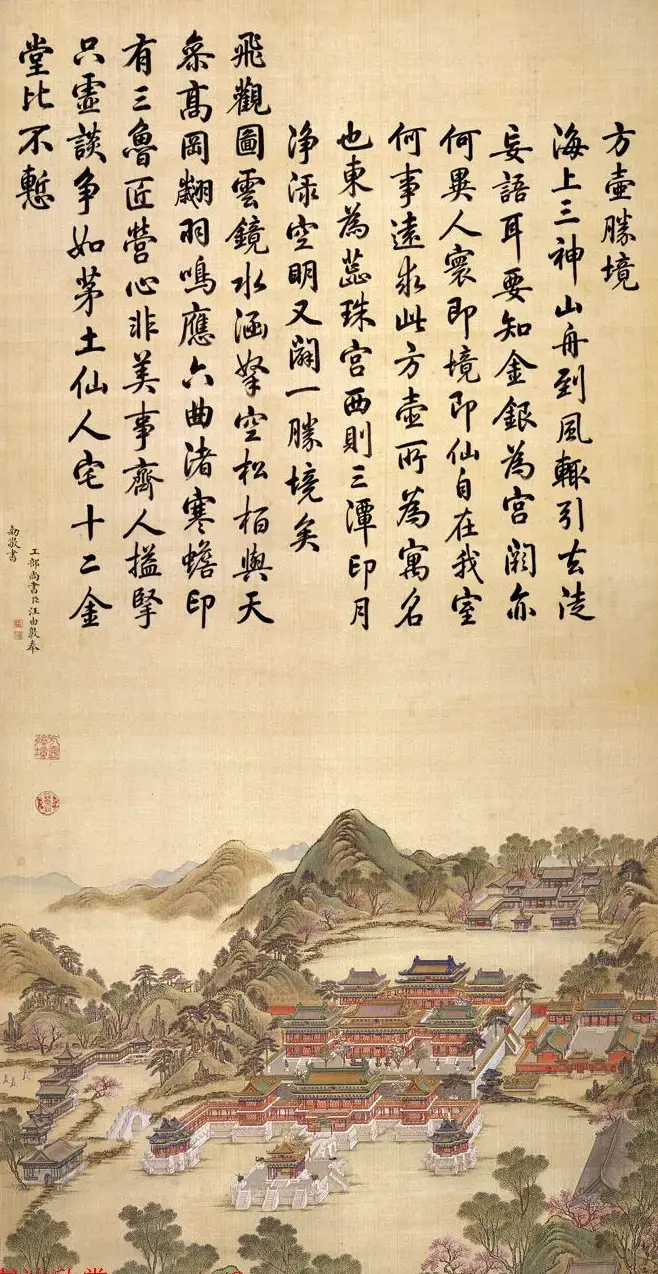 方壺勝境
海上三神山舟到風輒引去徒
妄語耳要知金銀為宮闕亦
何異人寰即境即仙自在我室
何事遠求此方壺所為寓名
也東為蕊珠宮西則三潭印月
净淥空明又闢一勝境矣
飛觀圖雲鏡水涵拏空松柏與天
叅高岡翽羽鳴應六曲渚寒蟾印
有三魯匠營心非美事齊人搤掔
只虛談爭如茅土仙人宅十二金
堂比不慙
工部尚書臣汪由敦奉
勅敬書